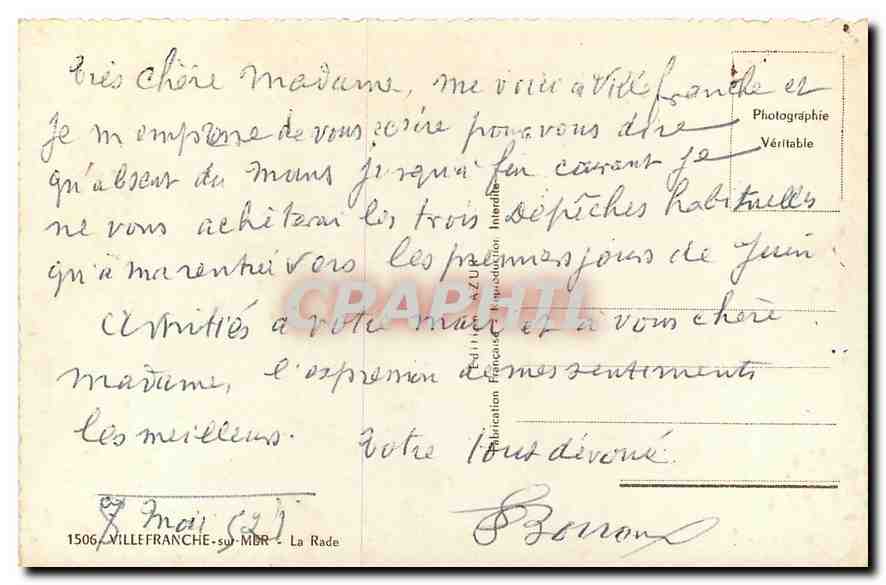 très chère Madame, me voici à Villefranche et
Photographie
Véritable
Je m'empresse de vous écrire pour vous dire
qu'absent du Mans jusqu'à fin courant je
ne vous achèterai les trois dépêches habituelles
qu'à ma rentrée vers les premiers jours de Juin.
Amitiés à votre mari et à vous chère
madame, l'expression de mes sentiments
les meilleurs. Votre tous dévoué
Mai
1506 - VILLEFRANCHE-sur-MER - La Rade
Edition AZUR
Fabrication Française - Reproduction Interdite
CRAPHIL